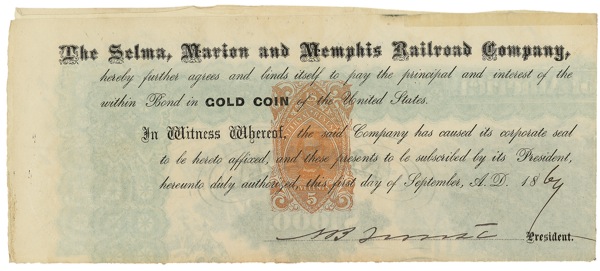 The Selma, Marion and Memphis Railroad Company,
hereby further agrees and binds itself to pay the principal and interest of the
within Bond in GOLD COIN of the United States.
In Witness Whereof, the said Company has caused its corporate seal
to be hereto affixed, and these presents to be subscribed by its President,
hereunto duly authorized, this first day of September, A. D. 1869
5
N B Forrest
President.